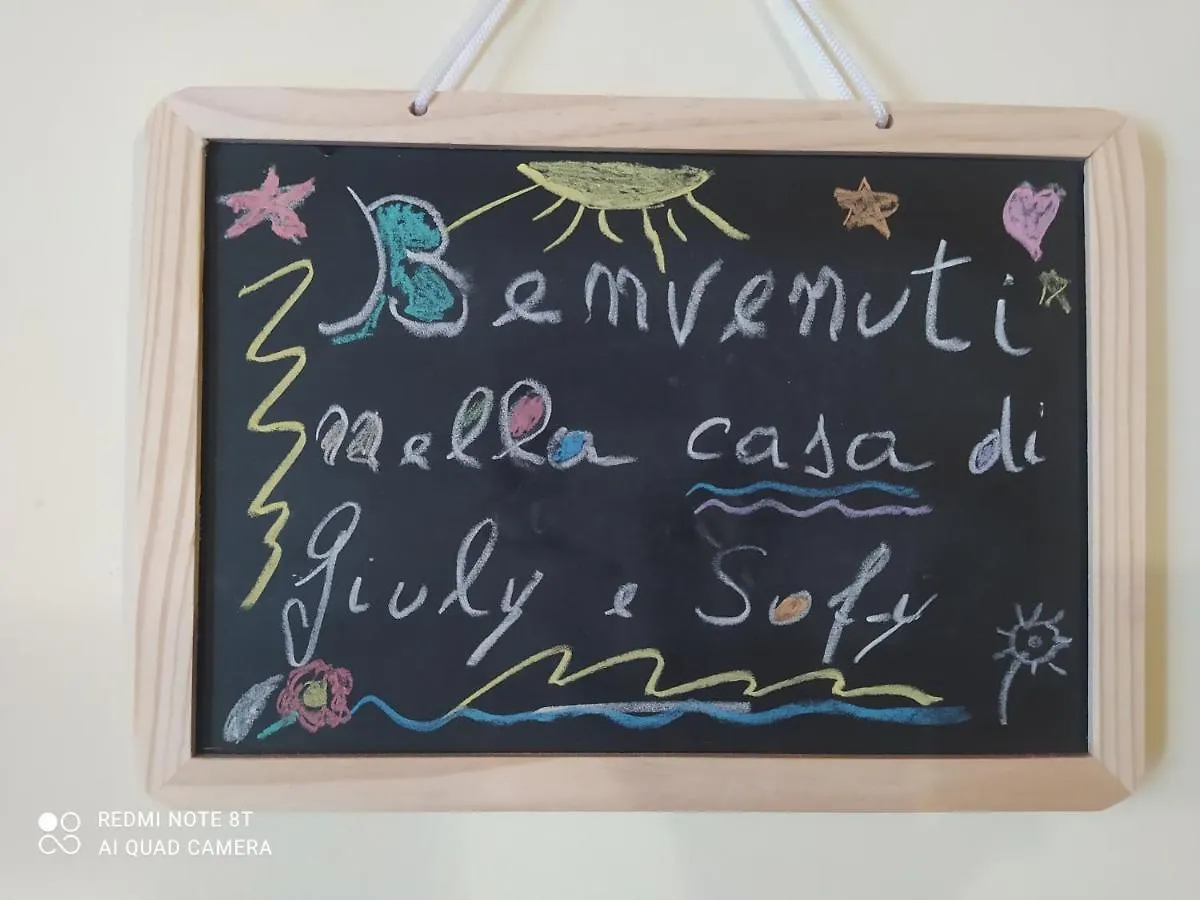 Benvenuti
nella casa di
Giuly e Sofy
REDMI NOTE 8T
AI QUAD CAMERA